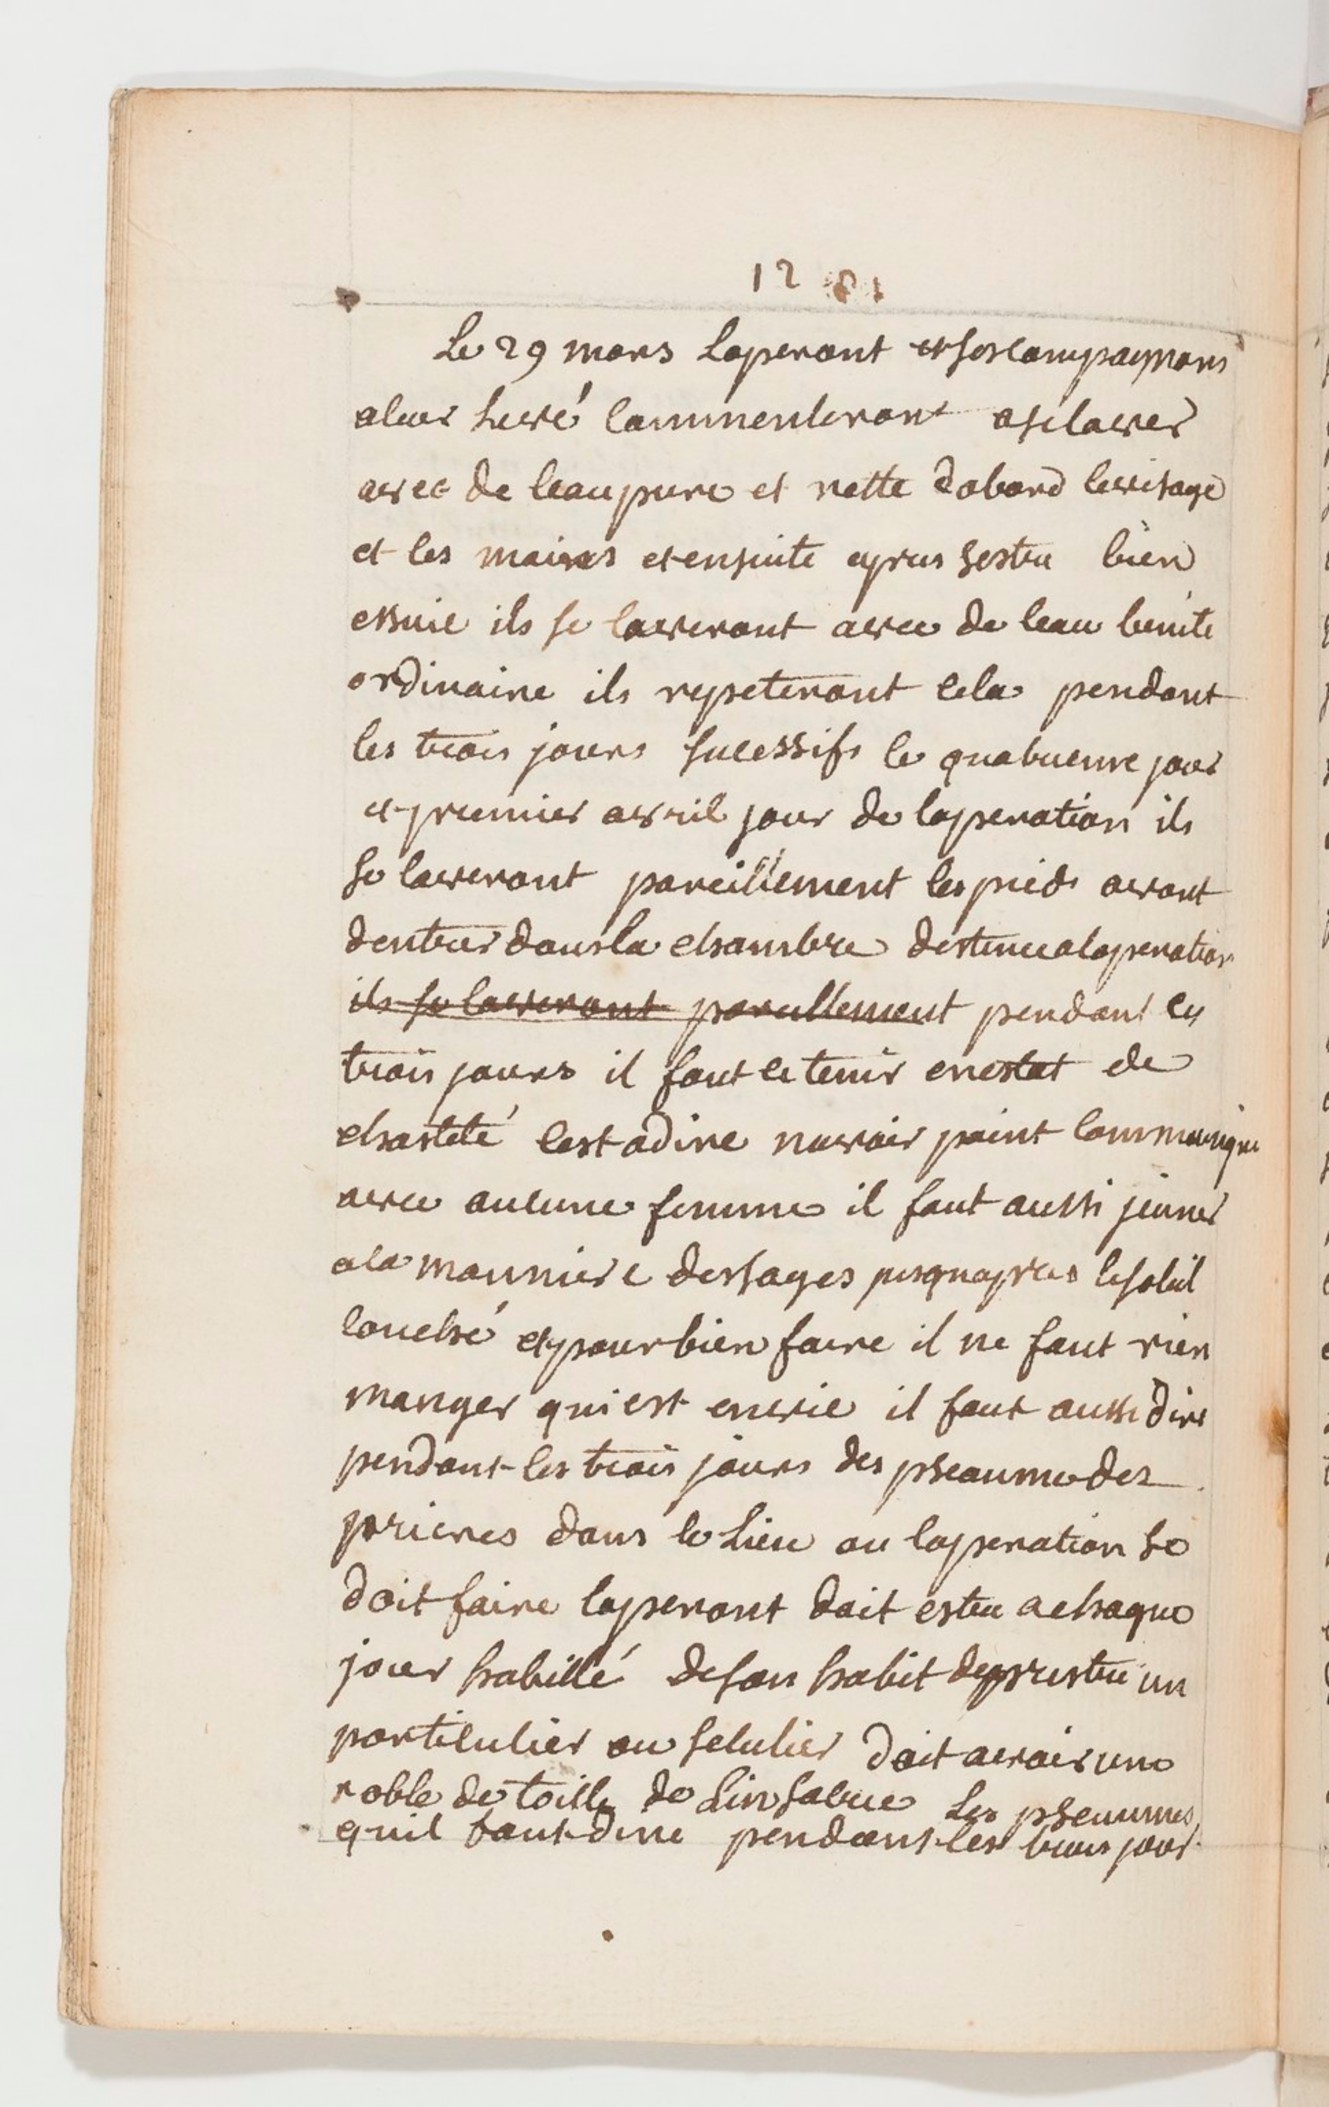 12
Le 29 mars loperant et ses compagnons
aleur levé commenceront ase laver
avec de leau pure et nette dabord levisage
et les mains et ensuite apres sestre bien
essuié ils se laveront avec de leau benite
ordinaire ils repeteront cela pendant
les trois jours sucessifs le quatrieme jour
et premier avril jour de loperation ils
se laveront pareillement les pieds avant
dentrer dans la chambre destinee aloperation
ils se laveront pareillement pendant ces
trois jours il faut ce tenir en estat de
chasteté cest adire navoir point communiqué
avec aucune femme il faut aussi jeuner
ala manniere des sages jusquapres lesoleil
couché et pour bien faire il ne faut rien
manger qui est envie il faut aussi dire
pendant les trois jours des pseaume des
prieres dans le lieu ou loperation se
doit faire loperant doit estre achaque
jour habillé de son habit de prestre un
particulier ou seculier doit avoir une
roble de toille de lin sacree les pseaumes
quil faut dire pendant les trois jour